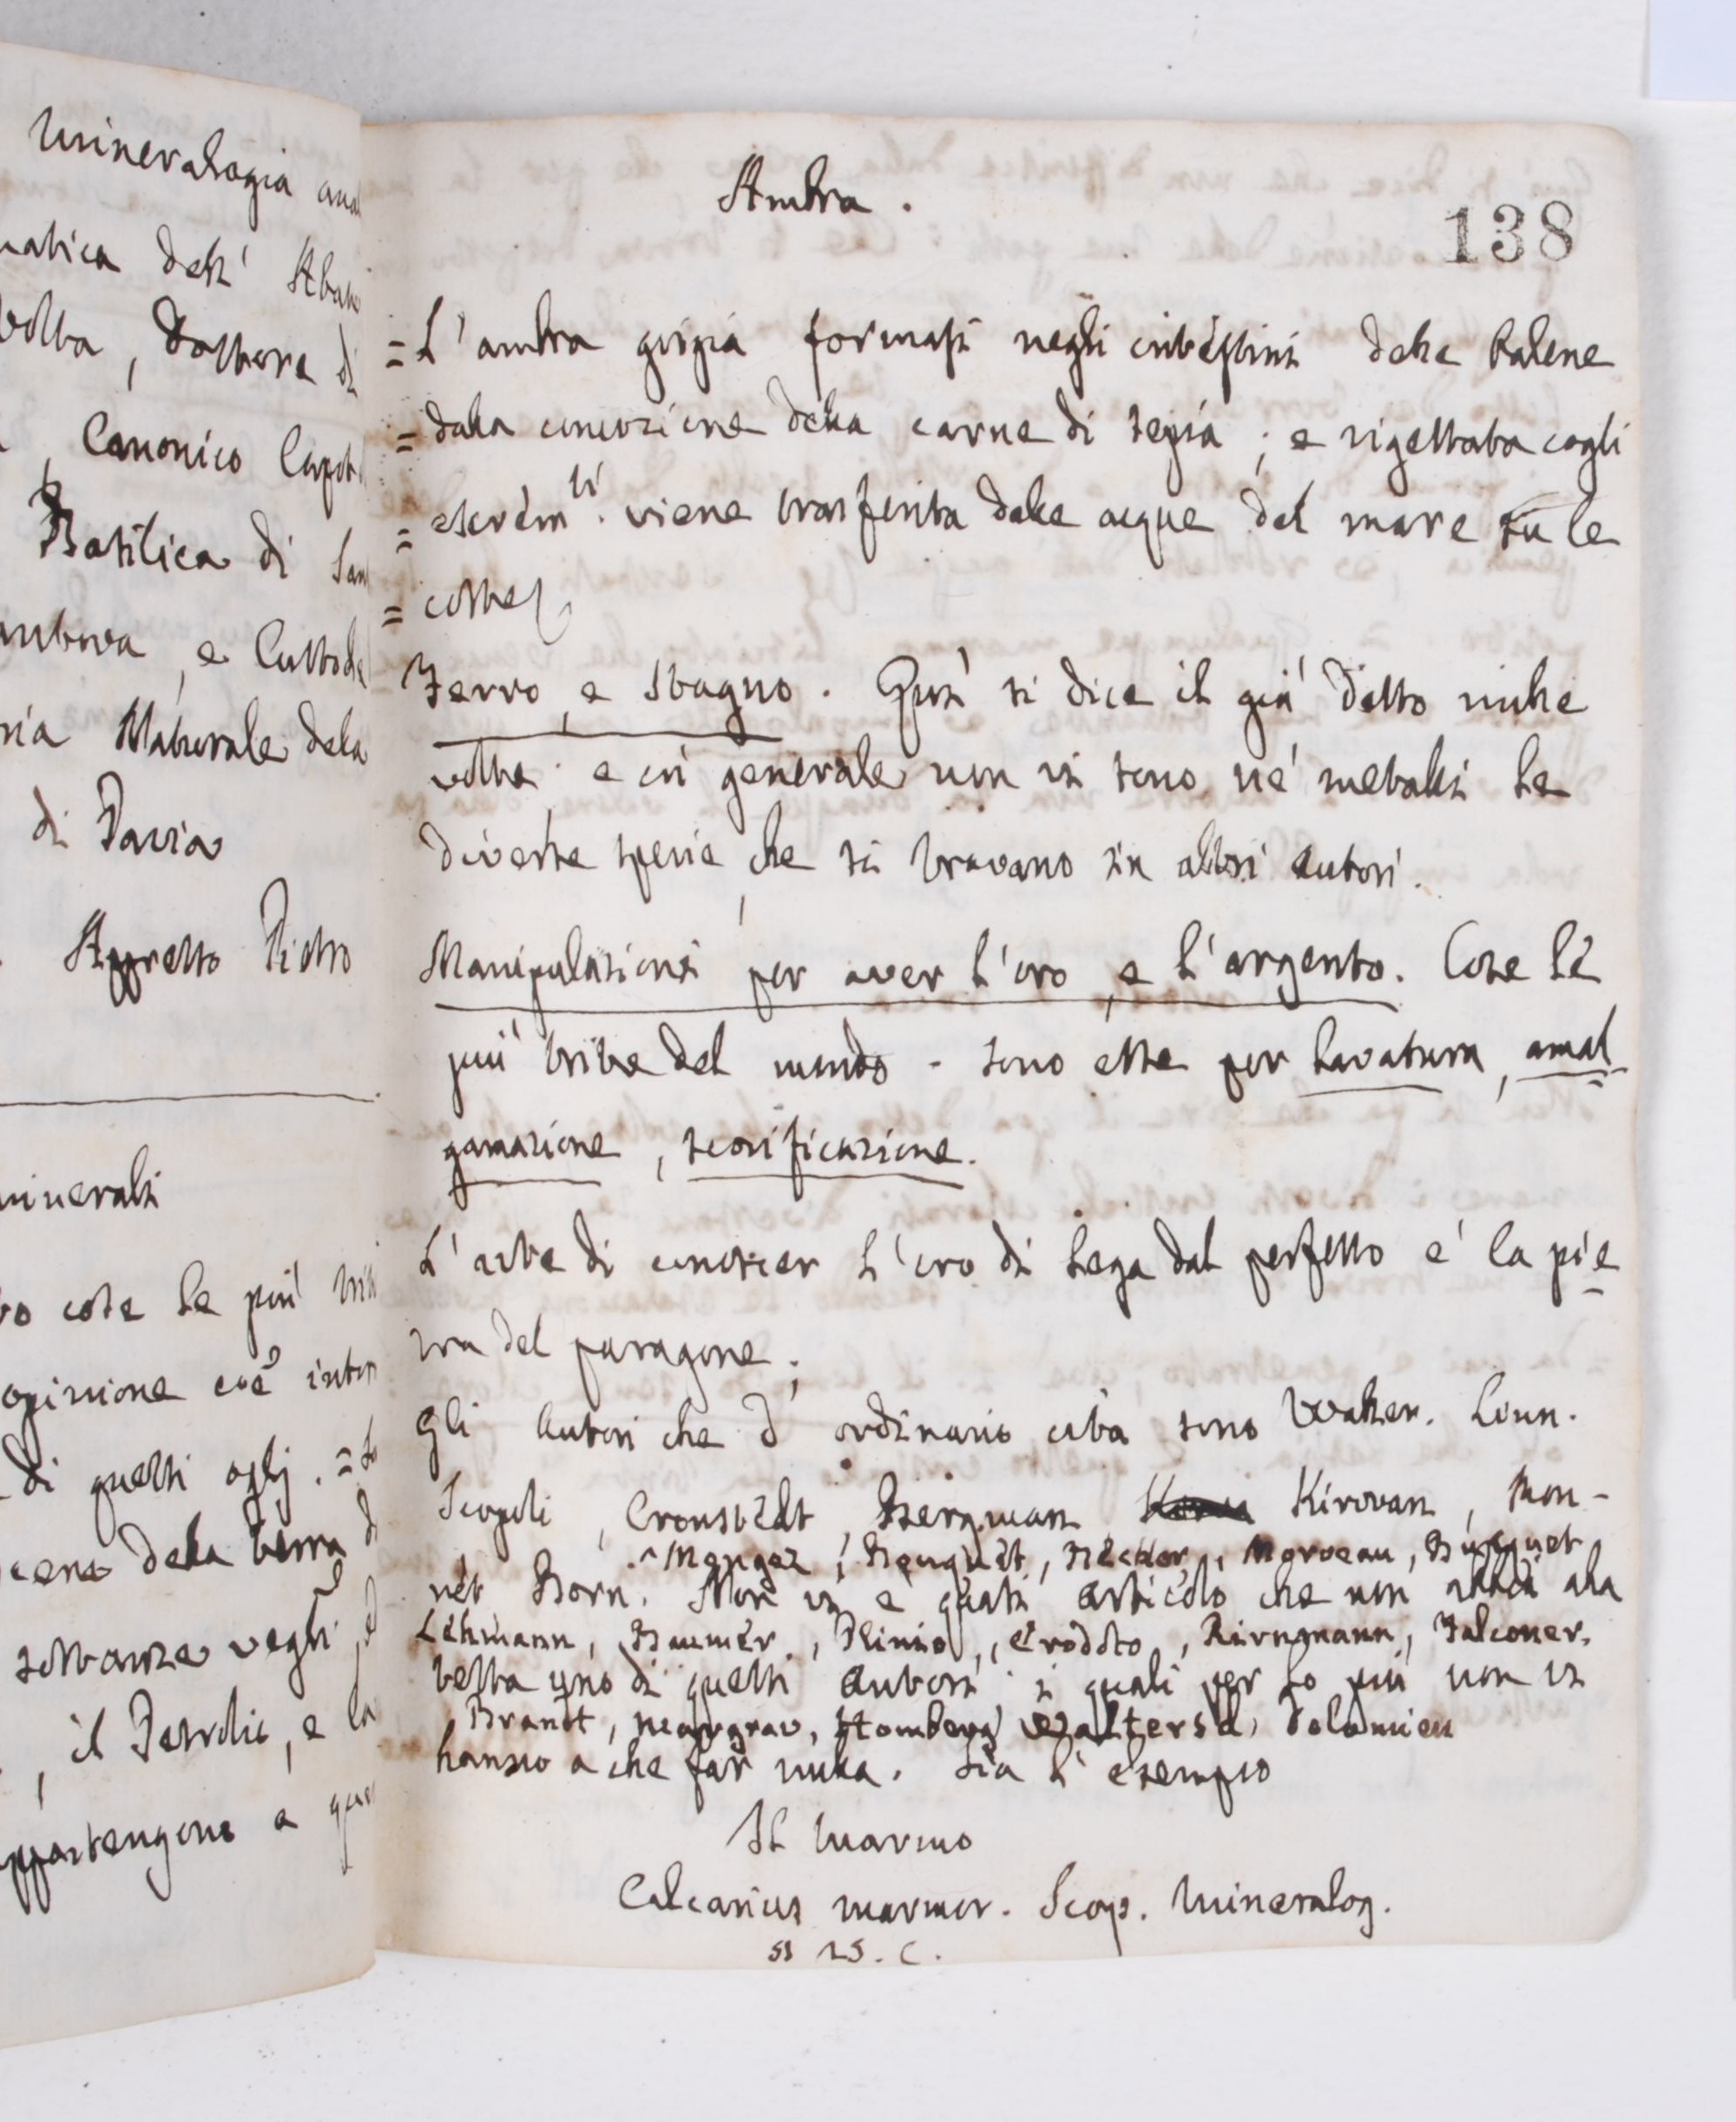 Mineralogia
matica dell' Abate
Volta, Dottore di
Canonico
Basilica di San
antova, e Custode
ria Naturale della
di Pavia
Appresso Pietro
minerali
ro cose le più
opinione cioè
di questi oglj. =
della terra
sostanze vegli
, il Petrolio, e la
appartengono a
Ambra.
138
= L'ambra grigia formasi negli intestini delle Balene
= dalla concozione della carne di sepia; e rigettata cogli
= escrem.ti viene trasferita dalle acque del mare su le
= coste
Ferro, e Stagno. Quì si dice il già detto mille
volte e in generale non vi sono ne' metalli le
diverse spezie, che si trovano in altri autori.
Manipulazioni per aver l'oro, e l'argento. Cose le
più trite del mondo - sono esse per lavatura, amal
gamazione, scorificazione.
L'arte di conoscer l'oro di lega dal perfetto e' la pie
tra del paragone.
Gli Autori che d' ordinario cita sono Waller. Linn.
Scopoli, Cronstedt, Bergman Kirwan, Mon-
Mongez, Bouquet, Necker, Morveau, Bucquet
net Born. Non vi e' quasi articolo che non alla
Lehmann, Baumer, Plinio, Erodoto, Falconer.
testa uno di questi autori i quali per lo più non vi
Brandt, Margrav, Homberg, Dolomieu
hanno a che far nulla. Sia l' esempio
Il Marmo
Calcarius marmor. Scop. Mineralog.
§ 25. C.